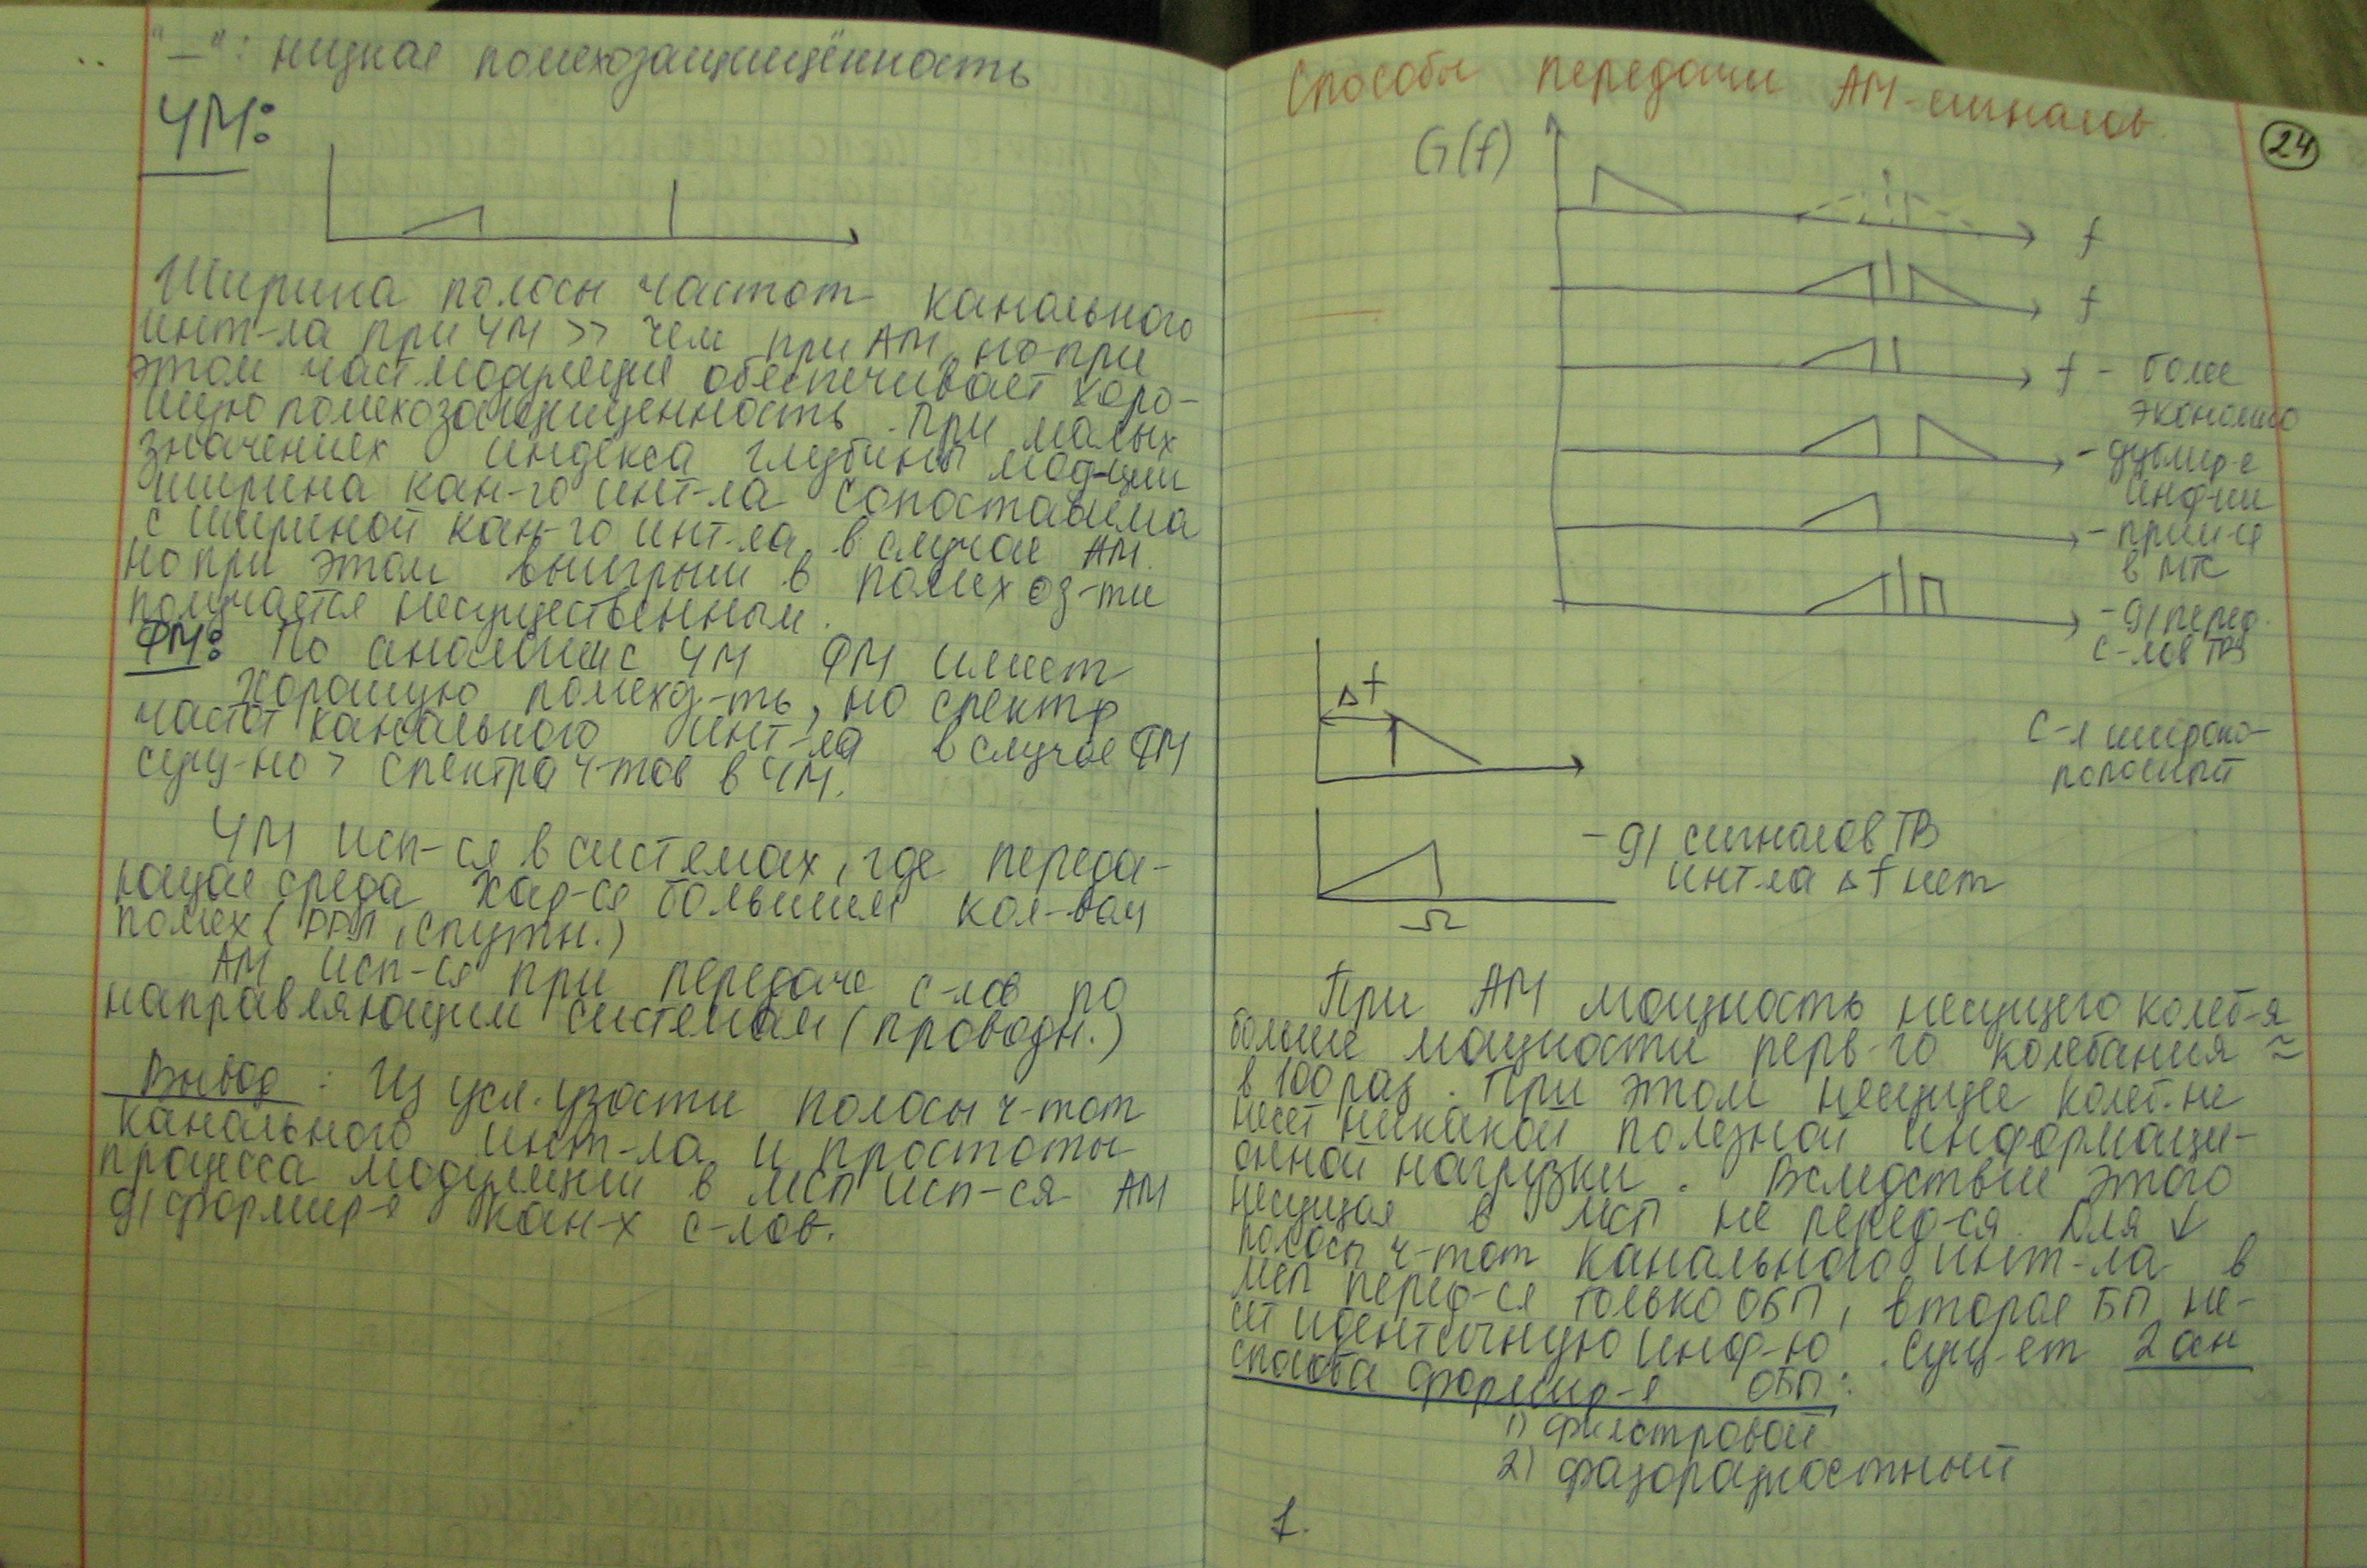 "—": низкая помехозащищённость
ЧМ:
Ширина полосы частот канального
инт-ла при ЧМ >> чем при АМ, но при
этом част. модуляция обеспечивает хоро-
шую помехозащищенность. При малых
значениях индекса глубины мод-ции
ширина кан-го инт-ла сопоставима
с шириной кан-го инт-ла в случае АМ.
но при этом выигрыш в помехоз-ти
получается несущественным.
ФМ: По аналогии с ЧМ ФМ имеет
хорошую помехоз-ть, но спектр
частот канального инт-ла в случае ФМ
сущ-но > спектра ч-тов в ЧМ.
ЧМ исп-ся в системах, где переда-
ющая среда хар-ся большим кол-вом
помех (РРЛ, спутн.)
АМ исп-ся при передаче с-лов по
направляющим системам (проводн.)
Вывод: Из усл. узости полосы ч-тот
канального инт-ла и простоты
процесса модуляции в МСП исп-ся АМ
д/формир-я кан-х с-лов.
Способы передачи АМ-сигналов.
24
G(f)
f
f
f - более
экономно
- дублир-е
инф-ии
- прим-ся
в МТС
- д/перед.
с-лов ТВ
Δf
С-л широко-
полосный
- д/ сигналов ТВ
инт-ла Δf нет
Ω
При АМ мощность несущего колеб-я
больше мощности перв-го колебания ≈
в 100 раз. При этом несущее колеб. не
несет никакой полезной информаци-
онной нагрузки. Вследствие этого
несущая в МСП не перед-ся. Для ↓
полосы ч-тот канального инт-ла в
МСП перед-ся только ОБП, вторая БП не-
сет идентичную инф-ю. Сущ-ет 2 ан
способа формир-я ОБП:
1) фильтровой
2) фазоразностный
1.